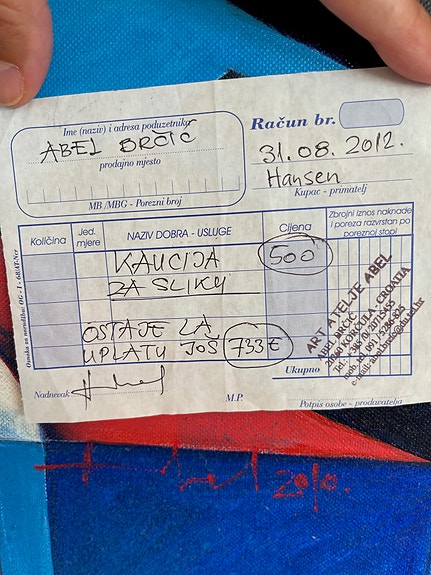 Ime (naziv) i adresa poduzetnika
ABEL BRČIĆ
prodajno mjesto
MB /MBG - Porezni broj
Račun br.
31.08. 2012.
Hansen
Kupac - primatelj
Količina
Jed. mjere
NAZIV DOBRA - USLUGE
Cijena
Zbrojni iznos naknade i poreza razvrstan po poreznoj stopi
KAUCIJA 500
ZA SLIKU
OSTAJE ZA
UPLATU JOŠ 733 €
Ukupno
ART ATELJE ABEL
ABEL BRČIĆ
20260 KORČULA - CROATIA
Nadnevak
M.P.
Potpis osobe - prodavatelja
2010.